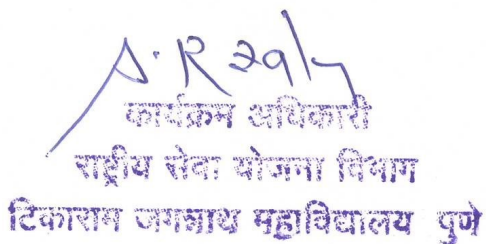 कार्यक्रम अधिकारी
राष्ट्रीय सेवा योजना विभाग
टिकाराम जगन्नाथ महाविद्यालय पुणे